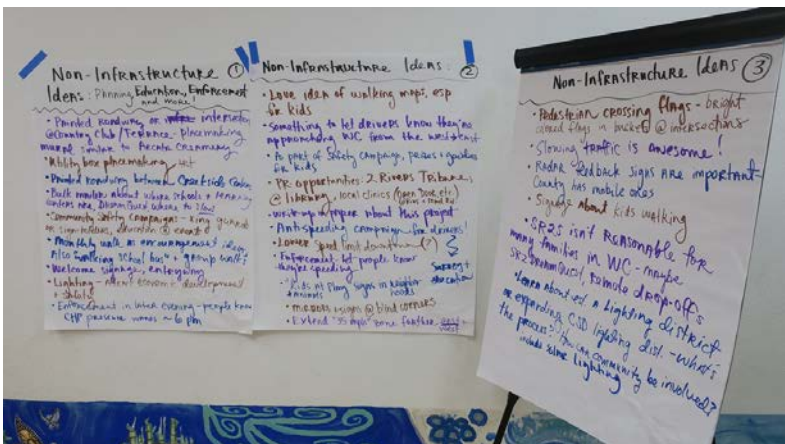 Non-Infrastructure ①
Ideas: Planning, Education, Enforcement
and more!
• Painted roundway or intersection
@Country Club/Terrace - placemaking
mural similar to Arcata
• Utility box placemaking art
• Painted roundway between Creekside
where to slow
• Community safety campaign -
on sign education @ events
• Monthly walk as encouragement idea
Also walking school bus + group walks
• Welcome signage, entryway
• Lighting - economic development
+ safety
• Enforcement in later evening - people know
CHP presence ~6 pm
Non-Infrastructure Ideas: ②
• Love idea of walking maps, esp
for kids
• Something to let drivers know they're
approaching WC from the west + east
• As part of safety campaign, prizes + goodies
for kids
• PR opportunities: 2 Rivers Tribune,
@ library, local clinics (Open Door, etc.)
• write-up in paper about this project
• Anti speeding campaign for drivers!
• Lower speed limit downtown (?)
• Enforcement: let people know
they're speeding
• "Kids at Play" signs in neighborhoods
Survey + education
• mirrors + signs @ blind corners
• Extend "35 mph" zone further east + west
Non-Infrastructure Ideas ③
• Pedestrian crossing flags - bright
colored flags in bucket @ intersections
• Slowing traffic is awesome!
• Radar feedback signs are important -
County has mobile ones
• Signage about kids walking
• SR2S isn't reasonable for
many families in WC - maybe
SR2 Dream Quest, Remote drop-offs
• Learn about a Lighting district
or expanding CSD lighting dist. - what's
the process? How can community be involved?
include solar lighting